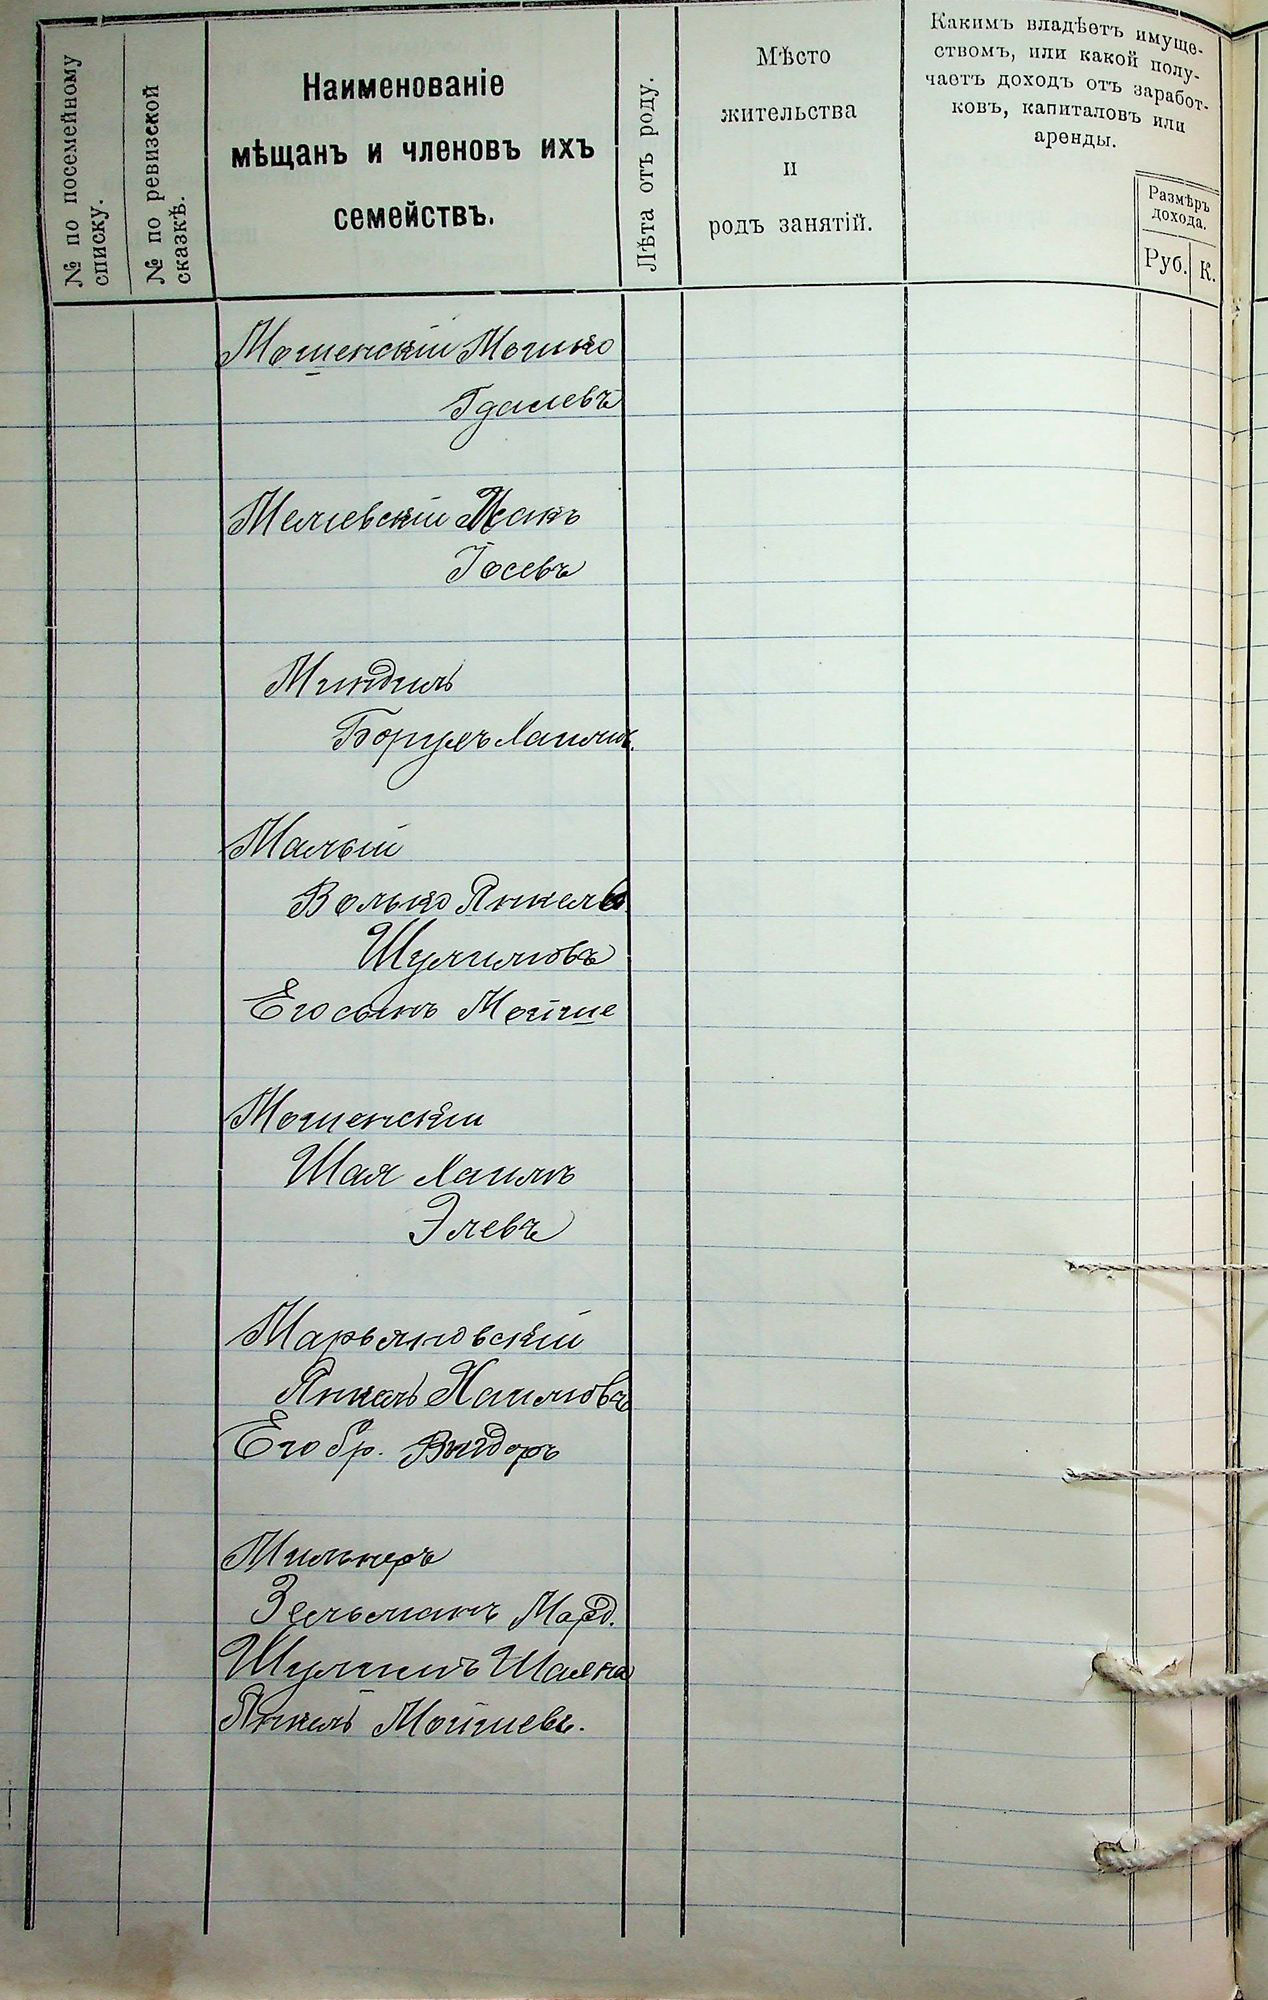 № по посемейному
списку.
№ по ревизской
сказкѣ.
Наименованіе
мѣщанъ и членовъ ихъ
семействъ.
Лѣта отъ роду.
Мѣсто
жительства
и
родъ занятій.
Какимъ владѣетъ имуще-
ствомъ, или какой полу-
чаетъ доходъ отъ заработ-
ковъ, капиталовъ или
аренды.
Размѣръ
дохода.
Руб.
К.
Мошенскій Мошко
Гдалевъ
Мелневскій Исакъ
Іосевъ
Миндиль
Борухъ Хаимъ.
Малый
Волько Янкель
Шулимовъ
Его сынъ Мойше
Мошенскій
Шая Хаимъ
Элевъ
Марьяновскій
Янкель Хаимовъ
Его бр. Выгдоръ
Мильнеръ
Зельманъ Морд.
Шулимъ Шаевъ
Янкель Мойшевъ.